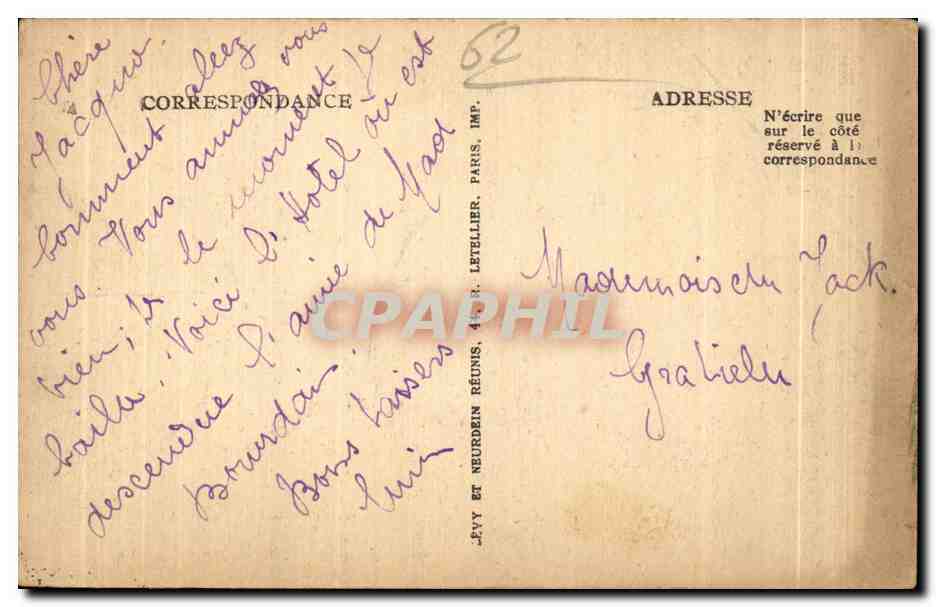 62
CORRESPONDANCE
ADRESSE
N'écrire que
sur le côté
réservé à la
correspondance
Chère
Jacquo.
Comment allez
vous. Vous amusez vous
bien, le moment je
baille. Voici l'Hotel où est
descendue l'amie de Mad
Bourdais.
Bons baisers
LÉVY ET NEURDEIN RÉUNIS, 44, R. LETELLIER, PARIS, IMP.
Jack.
CPAPHIL